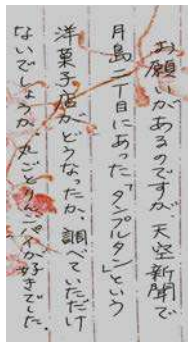 お願いがあるのですが、天空新聞で
月島二丁目にあった「タンプルタン」という
洋菓子店がどうなったか、調べていただけ
ないでしょうか。丸ごとりんごパイが好きでした。